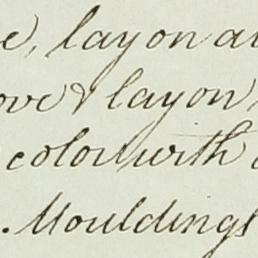 e, lay on a
ove & lay on
colour with
. Mouldings